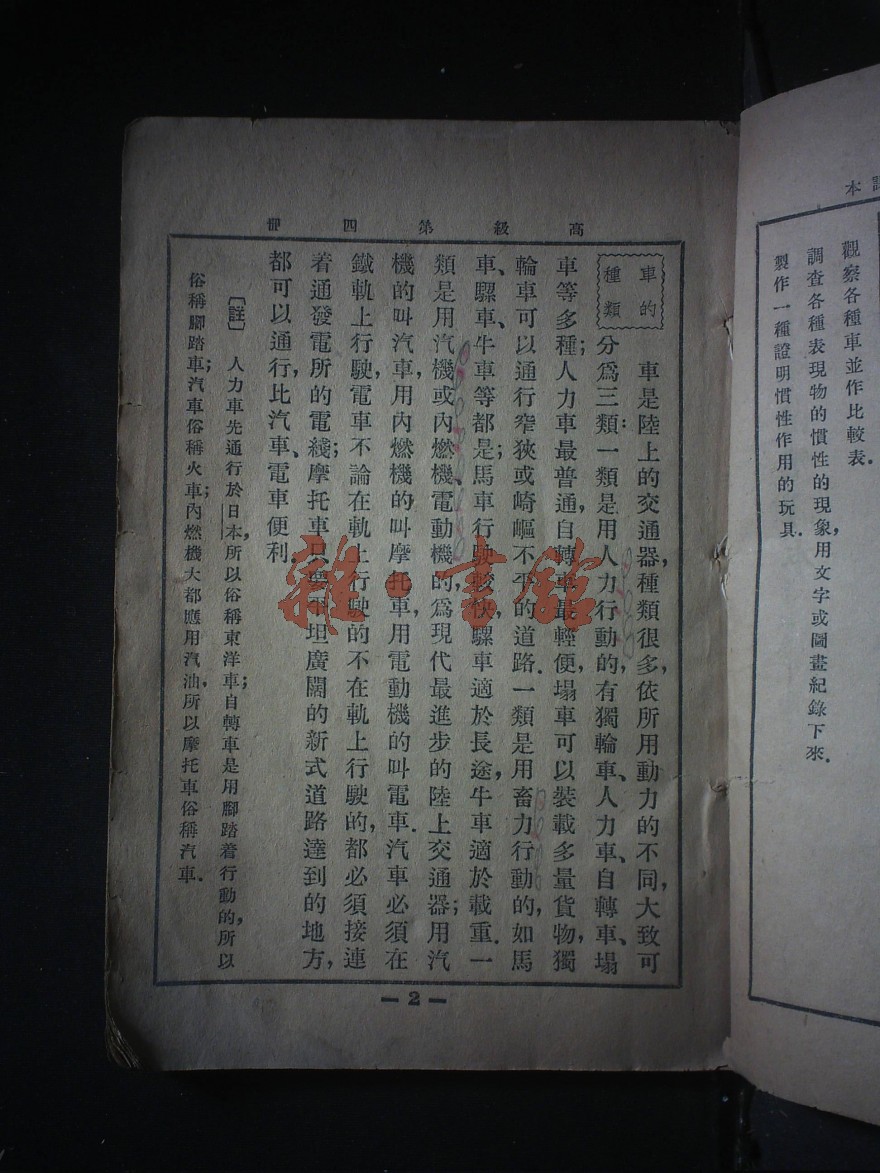 本
觀察各種車並作比較表.
調查各種表現物的慣性的現象,用文字或圖畫紀錄下來.
製作一種證明慣性作用的玩具.
高級第四冊
車的
種類
車是陸上的交通器,種類很多,依所用動力的不同,大致可
分爲三類:一類是用人力行動的,有獨輪車、人力車、自轉車、塌
車等多種;人力車最普通,自轉車最輕便,塌車可以裝載多量貨物,獨
輪車可以通行窄狹或崎嶇不平的道路.一類是用畜力行動的,如馬
車、騾車、牛車等都是;馬車行駛較快,騾車適於長途,牛車適於載重.一
類是用汽機或內燃機、電動機的,爲現代最進步的陸上交通器;用汽
機的叫汽車,用內燃機的叫摩托車,用電動機的叫電車.汽車必須在
鐵軌上行駛,電車不論在軌上行駛的不在軌上行駛的,都必須接連
着通發電所的電綫;摩托車只要平坦廣闊的新式道路達到的地方,
都可以通行,比汽車、電車便利.
〔註〕 人力車先通行於日本,所以俗稱東洋車;自轉車是用腳踏着行動的,所以
俗稱腳踏車;汽車俗稱火車;內燃機大都應用汽油,所以摩托車俗稱汽車.
— 2 —
雜·書館